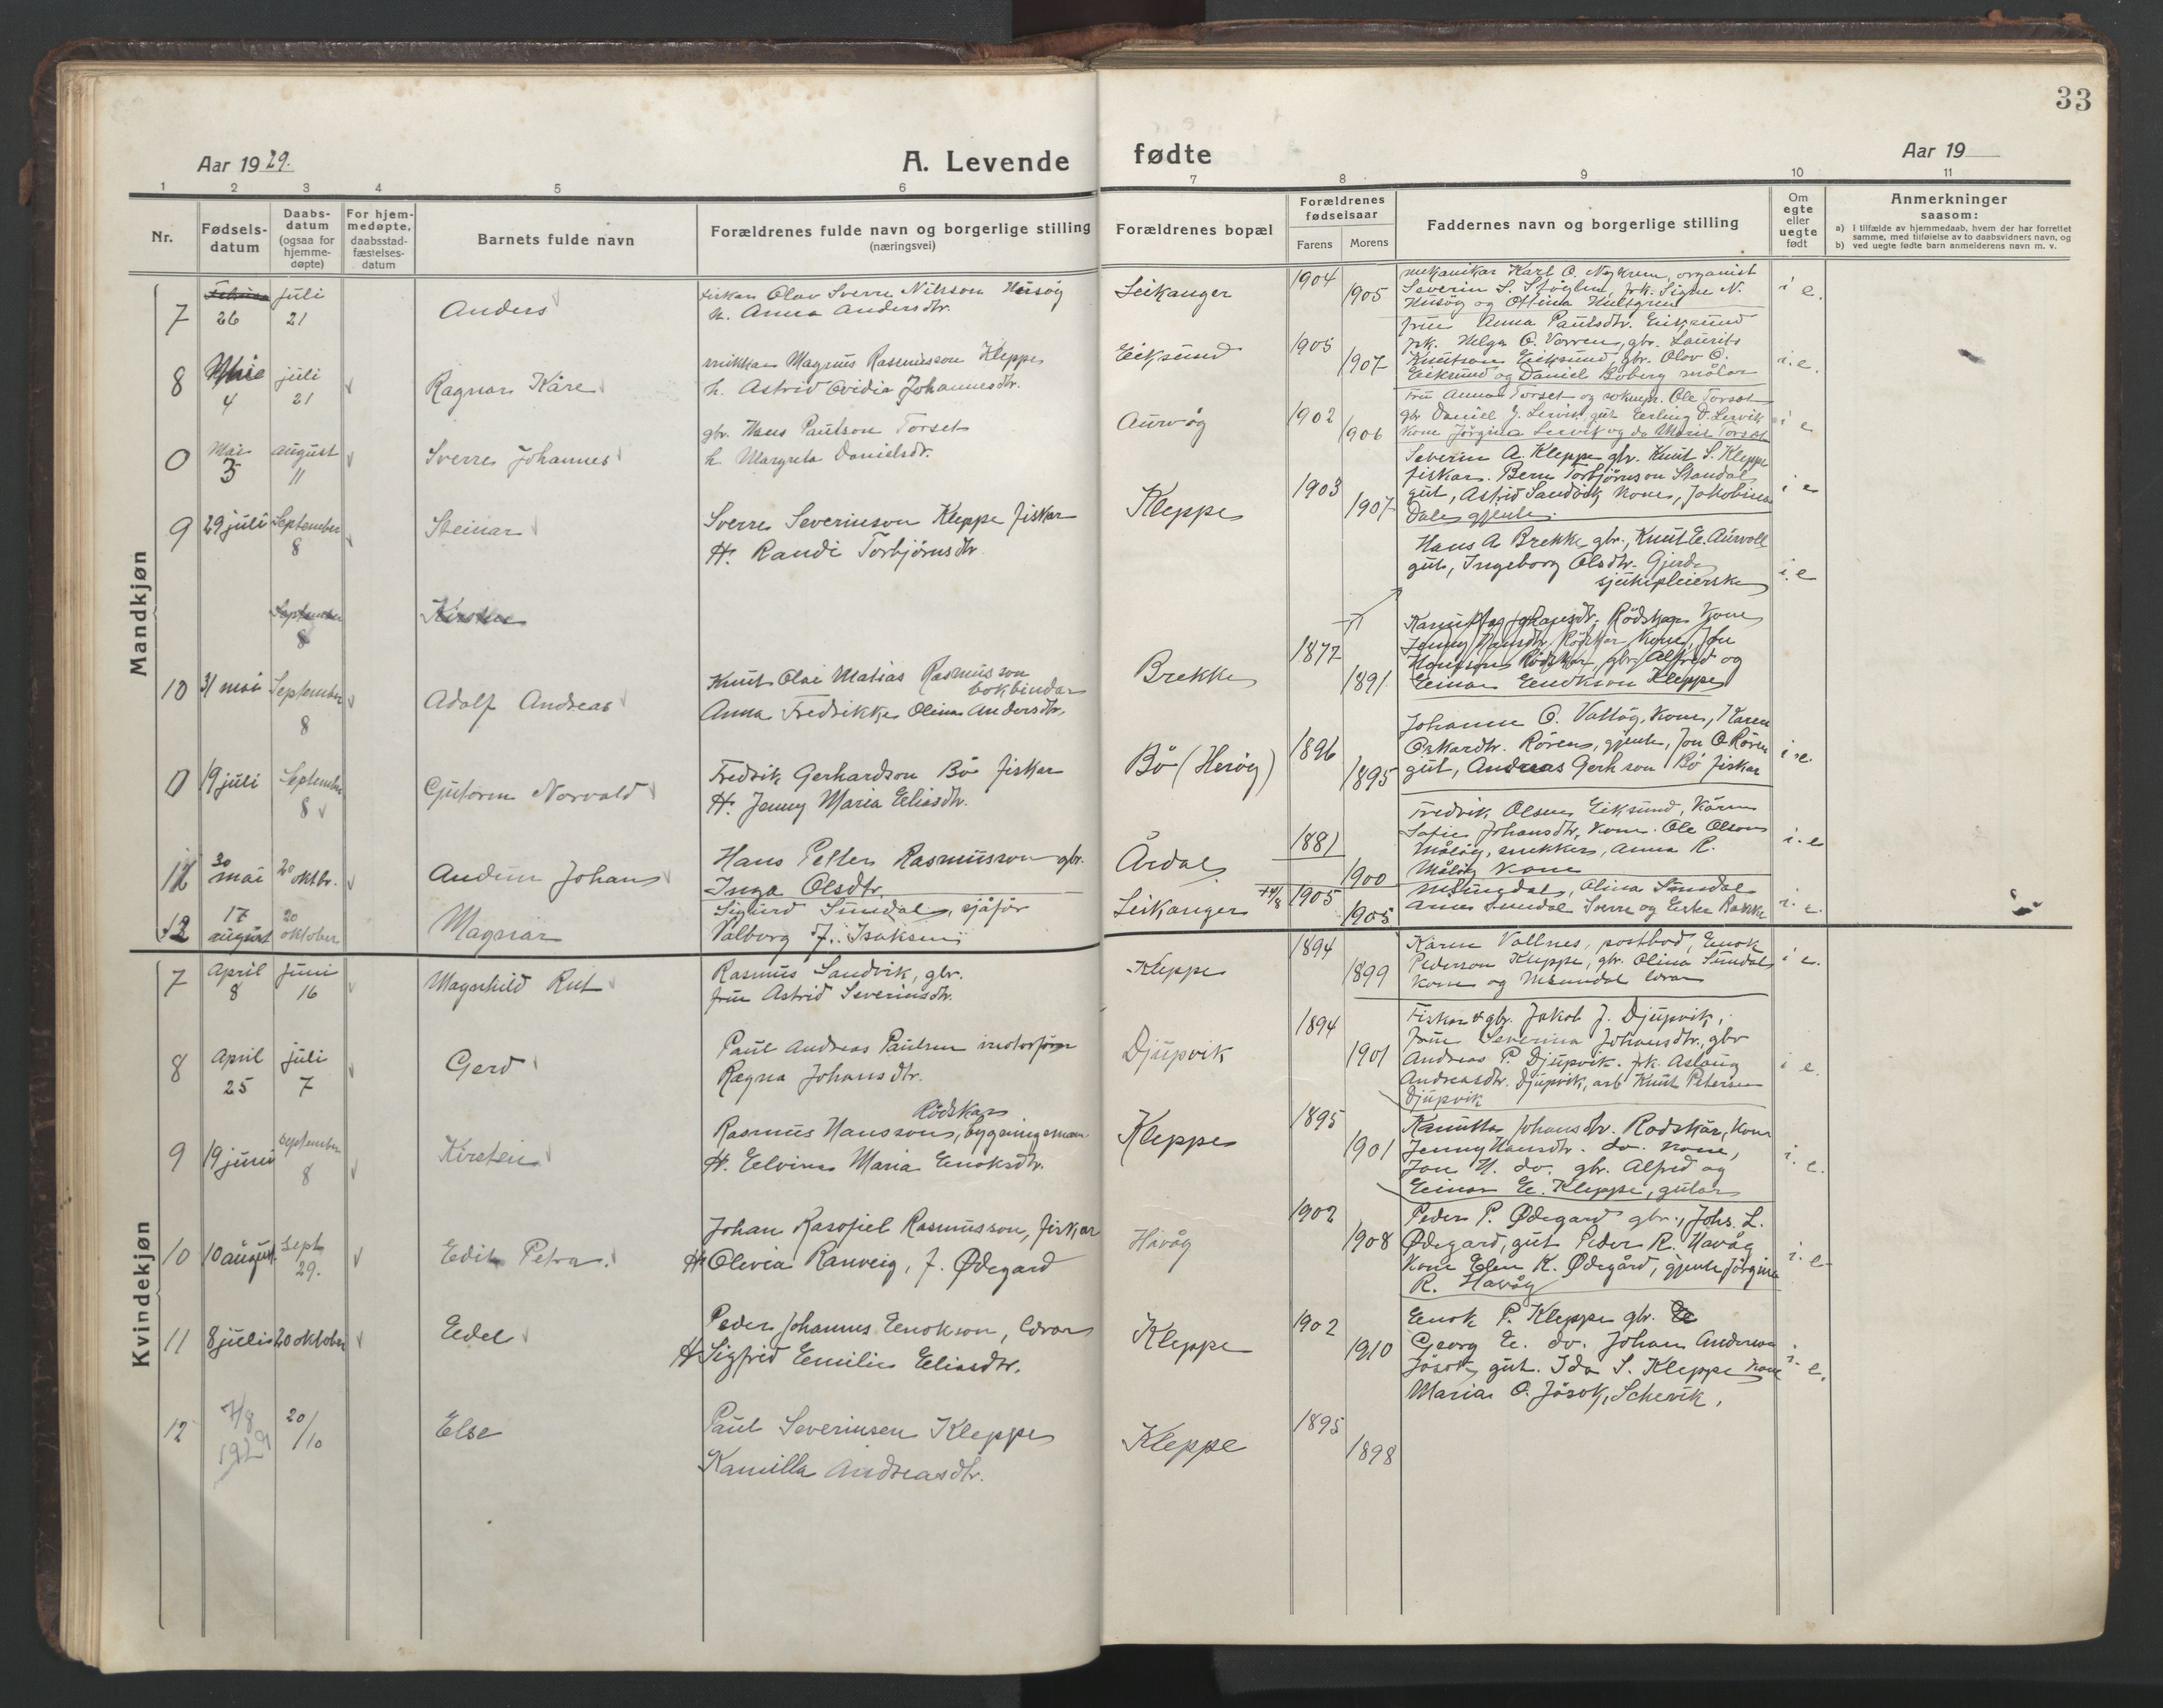 33
Aar 1929.
A. Levende
fødte
Aar 19
1 2 3 4 5 6 7 8 9 10 11
Nr.
Fødsels-
datum
Daabs-
datum
(ogsaa for
hjemme-
døpte)
For hjem-
medøpte,
daabsstad-
fæstelses-
datum
Barnets fulde navn
Forældrenes fulde navn og borgerlige stilling
(næringsvei)
Forældrenes bopæl
Forældrenes
fødselsaar
Farens
Morens
Faddernes navn og borgerlige stilling
Om
egte
eller
uegte
født
Anmerkninger
saasom:
a) i tilfælde av hjemmedaab, hvem der har forrettet
samme, med tilføielse av to daabsvidners navn, og
b) ved uegte fødte barn anmelderens navn m. v.
Mandkjøn
7 26 juli 21 Anders
fiskar Olav Sverre Nilsson Husøy
h. Anna Andersdtr.
Leikanger 1904 1905
mekanikar Karl O. organist
Severin S. Støylen, frk. Signe N.
Husøy og Ottina Hultgren
i e.
8 4 juli 21 Ragnar Kåre
snikkar Magnus Rasmusson Kleppe
h. Astrid Ovidia Johannesdtr.
Eiksund 1905 1907
fru Anna Paulsdtr. Eiksund
frk. Helga O. Vorren, gbr. Laurits
Knutson Eiksund, gbr. Olav O.
Eiksund og Daniel Boberg målar
i. e.
0 Mai 3 august 11 Sverre Johannes
gbr. Hans Paulson Torset
h. Margreta Danielsdr.
Aurvåg 1902 1906
Fru Anna Torset og Ole Torset
gbr. Daniel J. Lervik gut Erling D. Lervik
kone Jørgina Lervik og do Marit Torset
i e
9 29 juli September 8 Steinar
Sverre Severinson Kleppe fiskar
H. Randi Torbjørnsdtr.
Kleppe 1903 1907
Severin A. Kleppe gbr. Knut S. Kleppe
fiskar. Bern Torbjørnson Standal
gut, Astrid Sandvik kone, Jakobina
Dale gjente.
i e
September 8 Kirsten
10 31 mai September 8 Adolf Andreas
Knut Olai Matias Rasmusson
bokbindar
Anna Fredrikke Olina Andersdtr.
Brekke 1877 1891
Hans A Brekke gbr., Knut E. Aurvoll
gut, Ingeborg Olsdtr. Gjerde
sjukepleierske
i. e
Kamilla Johansdtr. Rødskar kone
Jenny Hansdtr. Rødskar kone, Jon
Hansson Rødskar, gbr. Alfred og
Einar Enokson Kleppe
0 19 juli September 8 Guttorm Norvald
Fredrik Gerhardson Bø fiskar
H. Jenny Maria Eliasdtr.
Bø (Herøy) 1896 1895
Johanne O. kone, Karen
Oskardtr. Røren, gjente, Jon O Røren
gut, Andreas Gerhson Bø fiskar
i e.
11 30 mai 20 oktbr. Audun Johan
Hans Petter Rasmusson gbr.
Inga Olsdtr.
Årdal 1881 1900
Fredrik Olsen Eiksund, Karen
Sofie Johansdtr, kone. Ole Olson
Måløy, snekker, Anna R.
Måløy kone
i. e
12 17 august 20 oktober Magnar
Sigurd Sundal, sjåfør
Valborg J. Isaksen
Leikanger 1905 1905
Olina Sundal
Sundal Sverre og
i. e.
Kvindekjøn
7 April 8 Juni 16 Magnhild Rut
Rasmus Sandvik, gbr.
fru Astrid Severinsdtr.
Kleppe 1894 1899
Karen Vallnes, postbod, Enok
Pederson Kleppe, gbr. Olina Sundal
kone og
i e.
8 April 25 juli 7 Gerd
Paul Andreas Paulsen motorfører
Ragna Johansdtr.
Djupvik 1894 1901
Fiskar & gbr. Jakob J. Djupvik,
Fru Severina Johansdtr., gbr
Andreas P. Djupvik. frk. Aslaug
Andreasdtr. Djupvik, arb Knut Petersen
Djupvik
i e.
9 19 juni september 8 Kirsten
Rødskar
Rasmus Hansson, bygningsman
H. Elvina Maria Enoksdtr.
Kleppe 1895 1901
Kamilla Johansdtr. Rødskår, kone
Jenny Hansdtr. do. kone,
Jon H. do. gbr. Alfred og
Einar E. Kleppe, gutar
i. e.
10 10 august Sept. 29. Edit Petra.
Johan Kasofiel Rasmusson, fiskar
H. Olivia Ranveig, f. Ødegard
Havåg 1902 1908
Peder P. Ødegard gbr., Johs. L.
Ødegard, gut Peder R. Havåg
kone Elen K. Ødegård, gjente Jørgina
R. Havåg
i. e
11 8 juli 20 oktober Edel
Peder Johannes Enokson,
H Sigfrid Emilie Eliasdtr.
Kleppe 1902 1910
Enok P. Kleppe gbr.
Georg E. do. Johan Anderson
Jøsok, gut. Ida S. Kleppe kone
Maria O. Jøsok,
i. e.
12 7/8 1929 20/10 Else
Paul Severinsen Kleppe
Kamilla Andreasdtr.
Kleppe 1895 1898